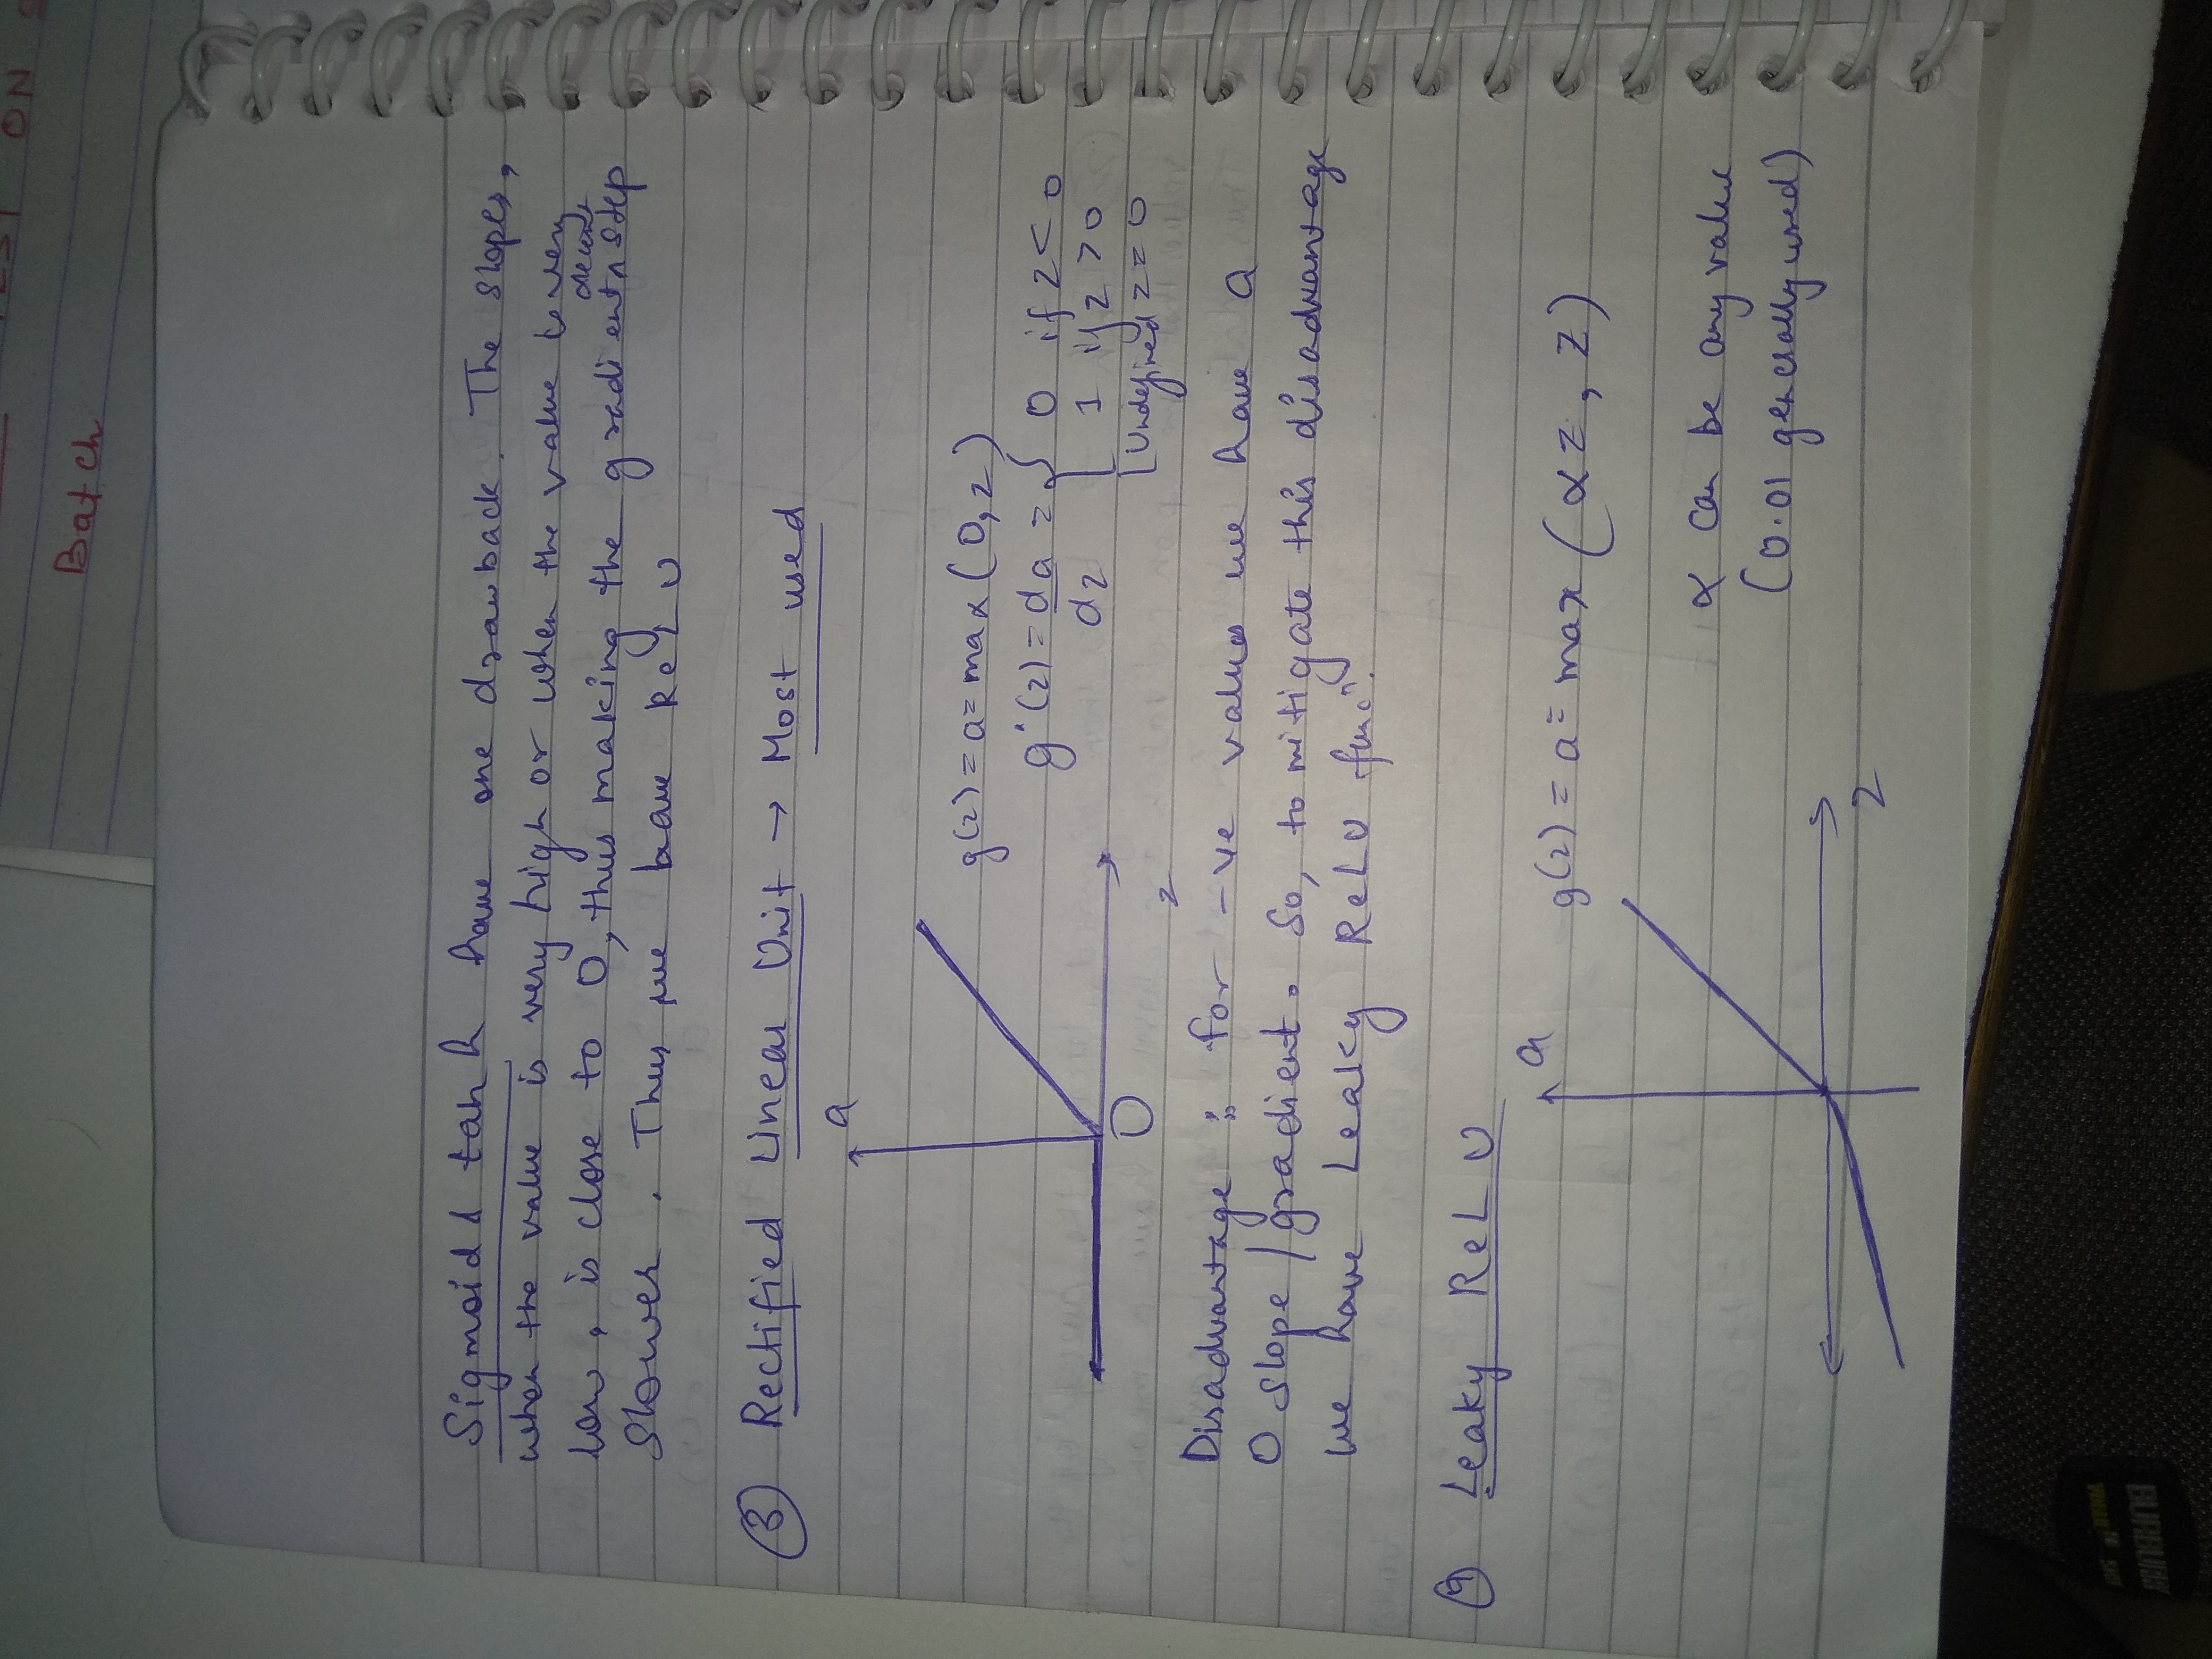 Sigmoid & tanh have one drawback. The slopes,
when the value is very high or when the value is very
low, is close to 0, thus making the gradient descent step
slower. Thus we have ReLU
③ Rectified Linear Unit → Most used
a
g(z) = a = max(0, z)
g'(z) = da/dz = { 0 if z < 0
1 if z > 0
[Undefined z = 0
0
z
Disadvantage : for -ve values we have a
0 slope / gradient. So, to mitigate this disadvantage
we have Leaky ReLU funcⁿ.
④ Leaky ReLU
a
g(z) = a = max(αz, z)
α can be any value
(0.01 generally used)
z
ON
Batch